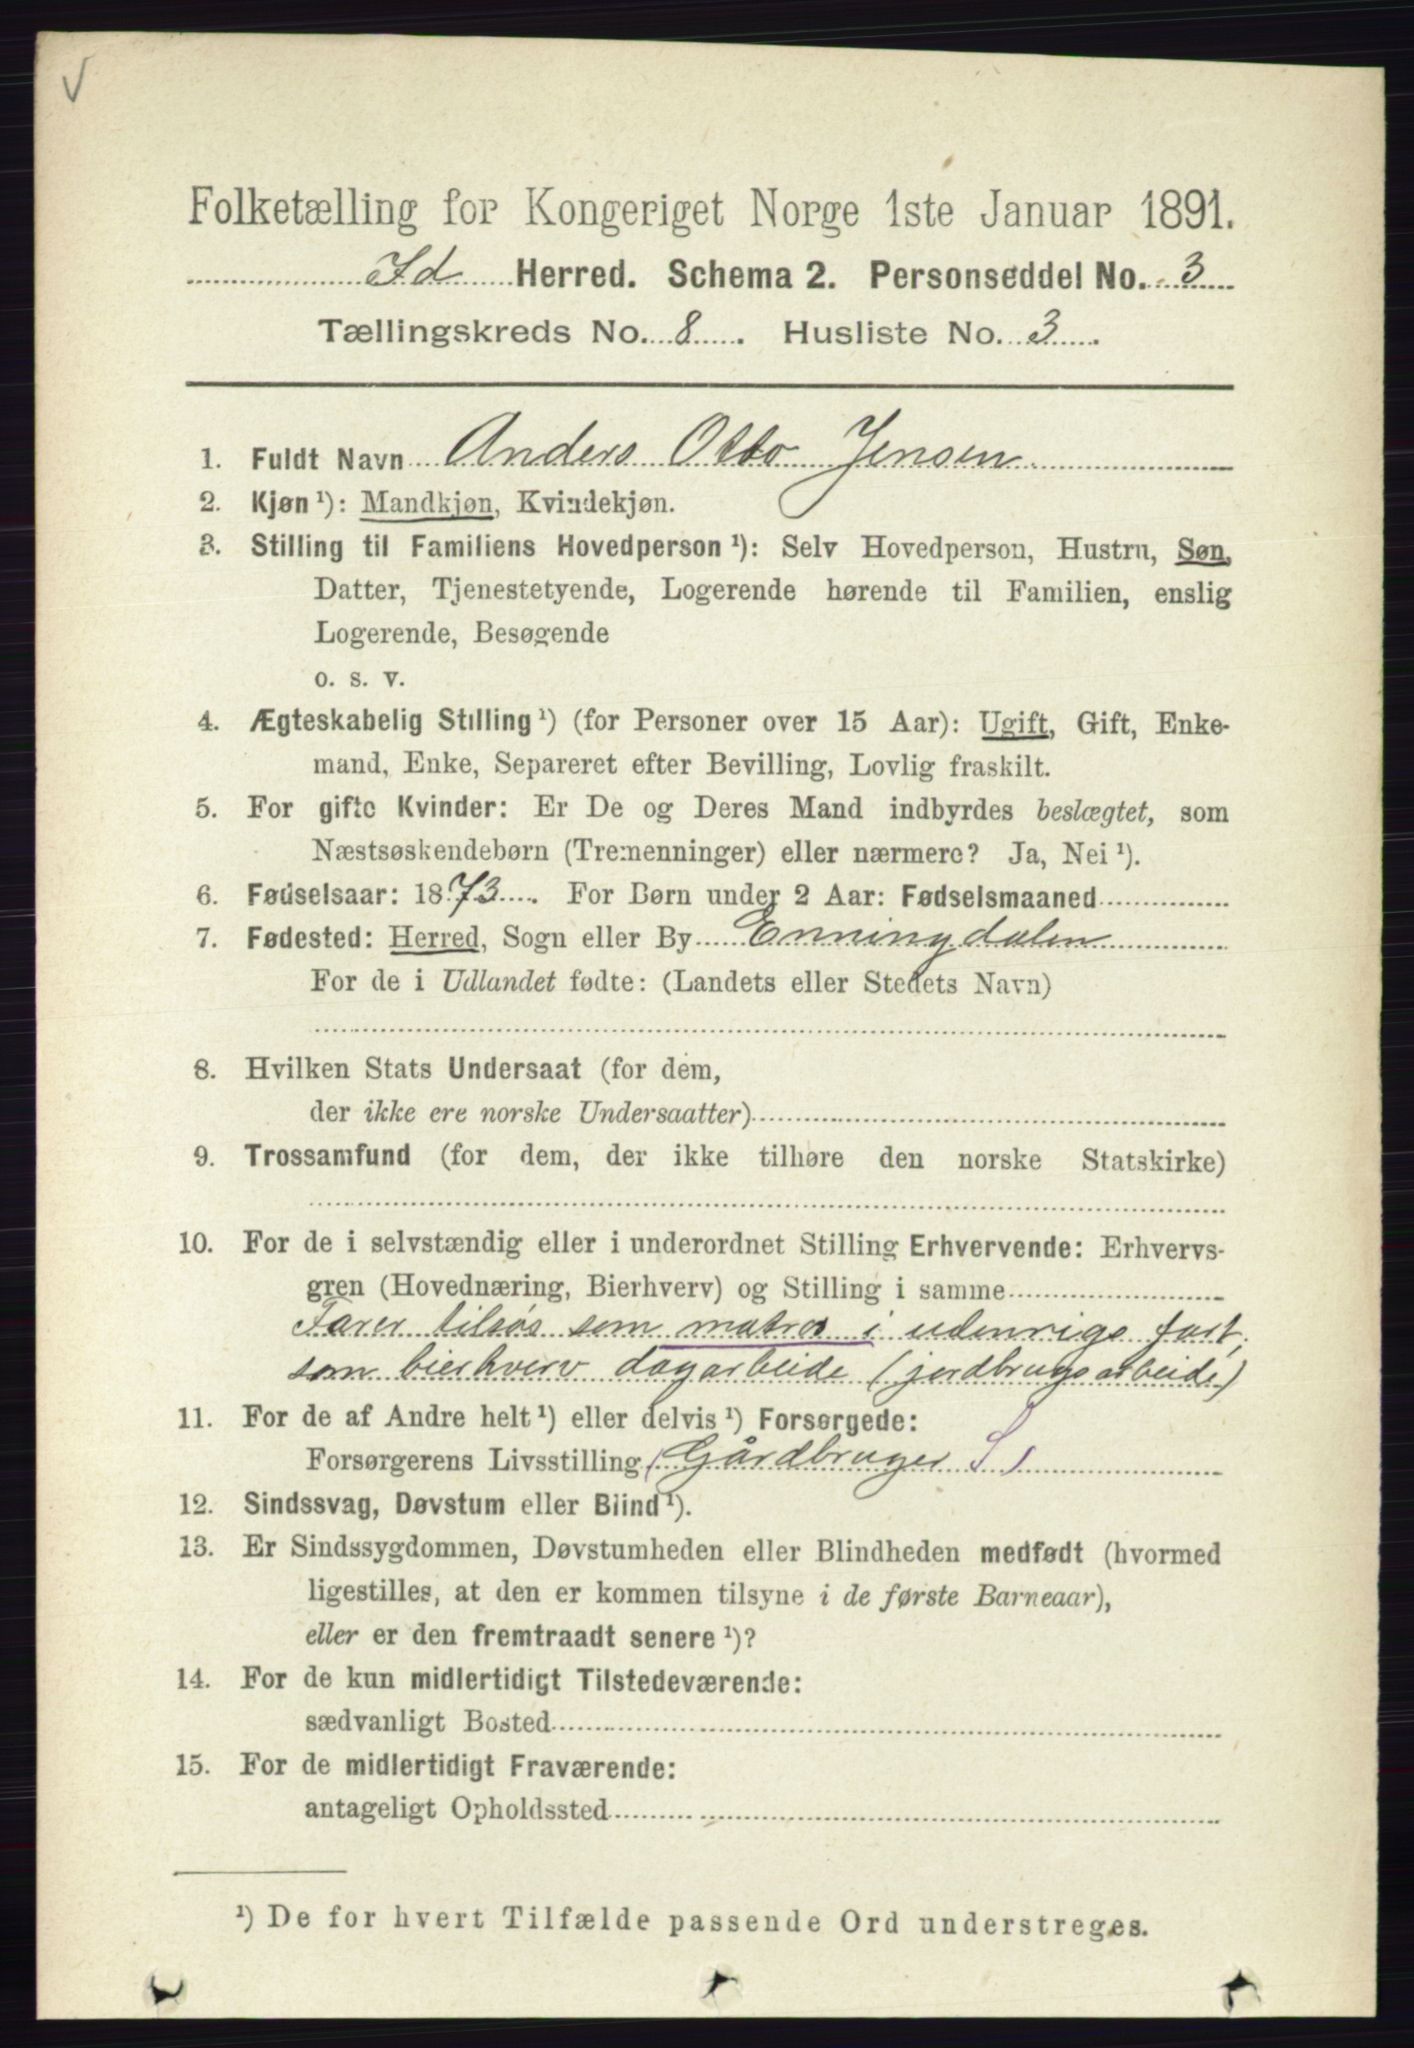 Folketælling for Kongeriget Norge 1ste Januar 1891.
Id Herred. Schema 2. Personseddel No. 3
Tællingskreds No. 8. Husliste No. 3.
1. Fuldt Navn Anders Otto Jensen
2. Kjøn ¹): Mandkjøn, Kvindekjøn.
3. Stilling til Familiens Hovedperson ¹): Selv Hovedperson, Hustru, Søn,
Datter, Tjenestetyende, Logerende hørende til Familien, enslig
Logerende, Besøgende
o. s. v.
4. Ægteskabelig Stilling ¹) (for Personer over 15 Aar): Ugift, Gift, Enke-
mand, Enke, Separeret efter Bevilling, Lovlig fraskilt.
5. For gifte Kvinder: Er De og Deres Mand indbyrdes beslægtet, som
Næstsøskendebørn (Tremenninger) eller nærmere? Ja, Nei ¹).
6. Fødselsaar: 1873. For Børn under 2 Aar: Fødselsmaaned
7. Fødested: Herred, Sogn eller By Enningdalen
For de i Udlandet fødte: (Landets eller Stedets Navn)
8. Hvilken Stats Undersaat (for dem,
der ikke ere norske Undersaatter)
9. Trossamfund (for dem, der ikke tilhøre den norske Statskirke)
10. For de i selvstændig eller i underordnet Stilling Erhvervende: Erhvervs-
gren (Hovednæring, Bierhverv) og Stilling i samme
Farer tilsøs som matros i udenrigs fart,
som bierhverv dagarbeide (jordbrugsarbeide)
11. For de af Andre helt ¹) eller delvis ¹) Forsørgede:
Forsørgerens Livsstilling (Gårdbruger S)
12. Sindssvag, Døvstum eller Blind ¹).
13. Er Sindssygdommen, Døvstumheden eller Blindheden medfødt (hvormed
ligestilles, at den er kommen tilsyne i de første Barneaar),
eller er den fremtraadt senere ¹)?
14. For de kun midlertidigt Tilstedeværende:
sædvanligt Bosted
15. For de midlertidigt Fraværende:
antageligt Opholdssted
¹) De for hvert Tilfælde passende Ord understreges.